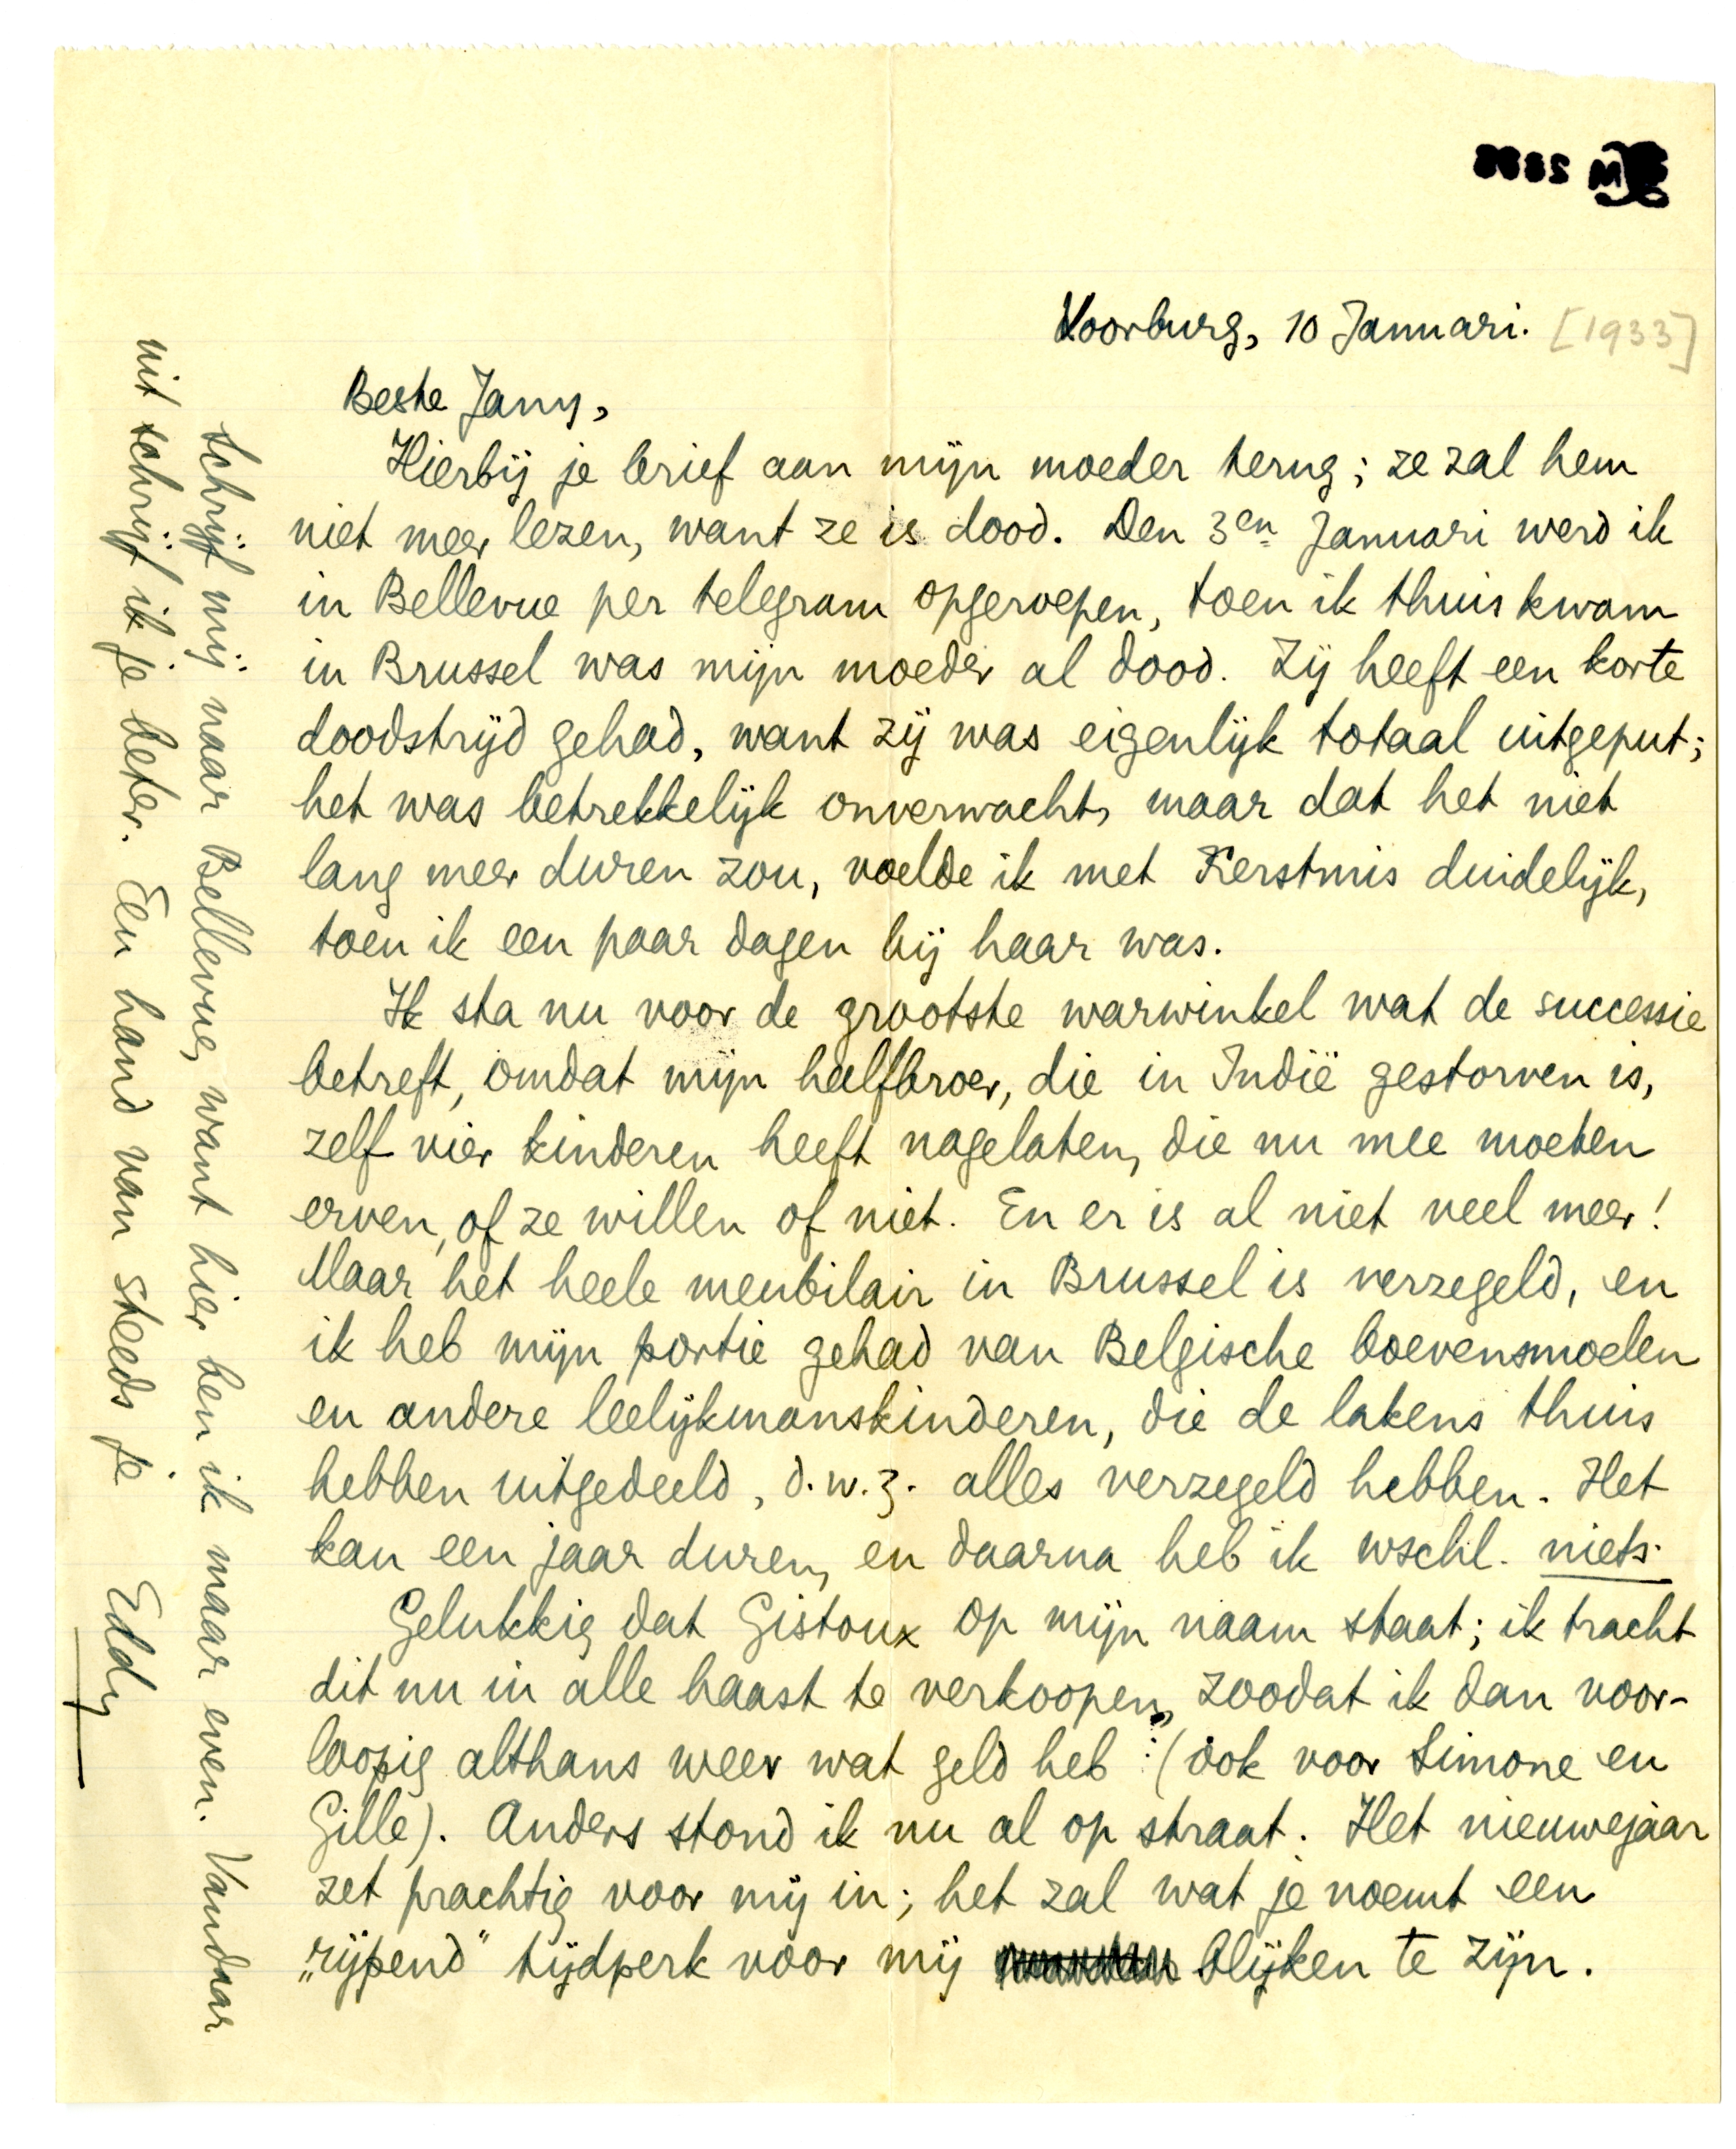 Voorburg, 10 Januari. [1933]
Beste Jany,
Hierbij je brief aan mijn moeder terug; ze zal hem
niet meer lezen, want ze is dood. Den 3en Januari werd ik
in Bellevue per telegram opgeroepen, toen ik thuis kwam
in Brussel was mijn moeder al dood. Zij heeft een korte
doodstrijd gehad, want zij was eigenlijk totaal uitgeput;
het was betrekkelijk onverwacht, maar dat het niet
lang meer duren zou, voelde ik met Kerstmis duidelijk,
toen ik een paar dagen bij haar was.
Ik sta nu voor de grootste warwinkel wat de successie
betreft, omdat mijn halfbroer, die in Indië gestorven is,
zelf vier kinderen heeft nagelaten, die nu mee moeten
erven, of ze willen of niet. En er is al niet veel meer!
Maar het heele meubilair in Brussel is verzegeld, en
ik heb mijn portie gehad van Belgische boevensmoelen
en andere leelijkmanskinderen, die de lakens thuis
hebben uitgedeeld, d.w.z. alles verzegeld hebben. Het
kan een jaar duren, en daarna heb ik wschl. niets.
Gelukkig dat Gistoux op mijn naam staat; ik tracht
dit nu in alle haast te verkoopen, zoodat ik dan voor-
loopig althans weer wat geld heb (ook voor Simone en
Gille). Anders stond ik nu al op straat. Het nieuwejaar
zet prachtig voor mij in; het zal wat je noemt een
„rijpend" tijdperk voor mij blijken te zijn.
Schrijf mij naar Bellevue, want hier ben ik maar even. Vandaar
uit schrijf ik je beter. Een hand van steeds je
Eddy